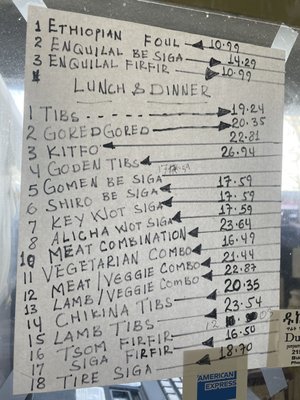 1 ETHIOPIAN FOUL 10.99
2 ENQUILAL BE SIGA 14.29
3 ENQUILAL FIRFIR 10.99
LUNCH & DINNER
1 TIBS 19.24
2 GORED GORED 20.35
3 KITFO 22.81
4 GODEN TIBS 26.94
5 GOMEN BE SIGA 17.59
6 SHIRO BE SIGA 17.59
7 KEY WOT SIGA 17.59
8 ALICHA WOT SIGA 17.59
10 MEAT COMBINATION 23.64
11 VEGETARIAN COMBO 16.49
12 MEAT/VEGGIE COMBO 21.44
13 LAMB/VEGGIE COMBO 22.87
14 CHIKINA TIBS 20.35
15 LAMB TIBS 23.54
16 TSOM FIRFIR
17 SIGA FIRFIR 16.50
18 TIRE SIGA 18.70
AMERICAN
EXPRESS